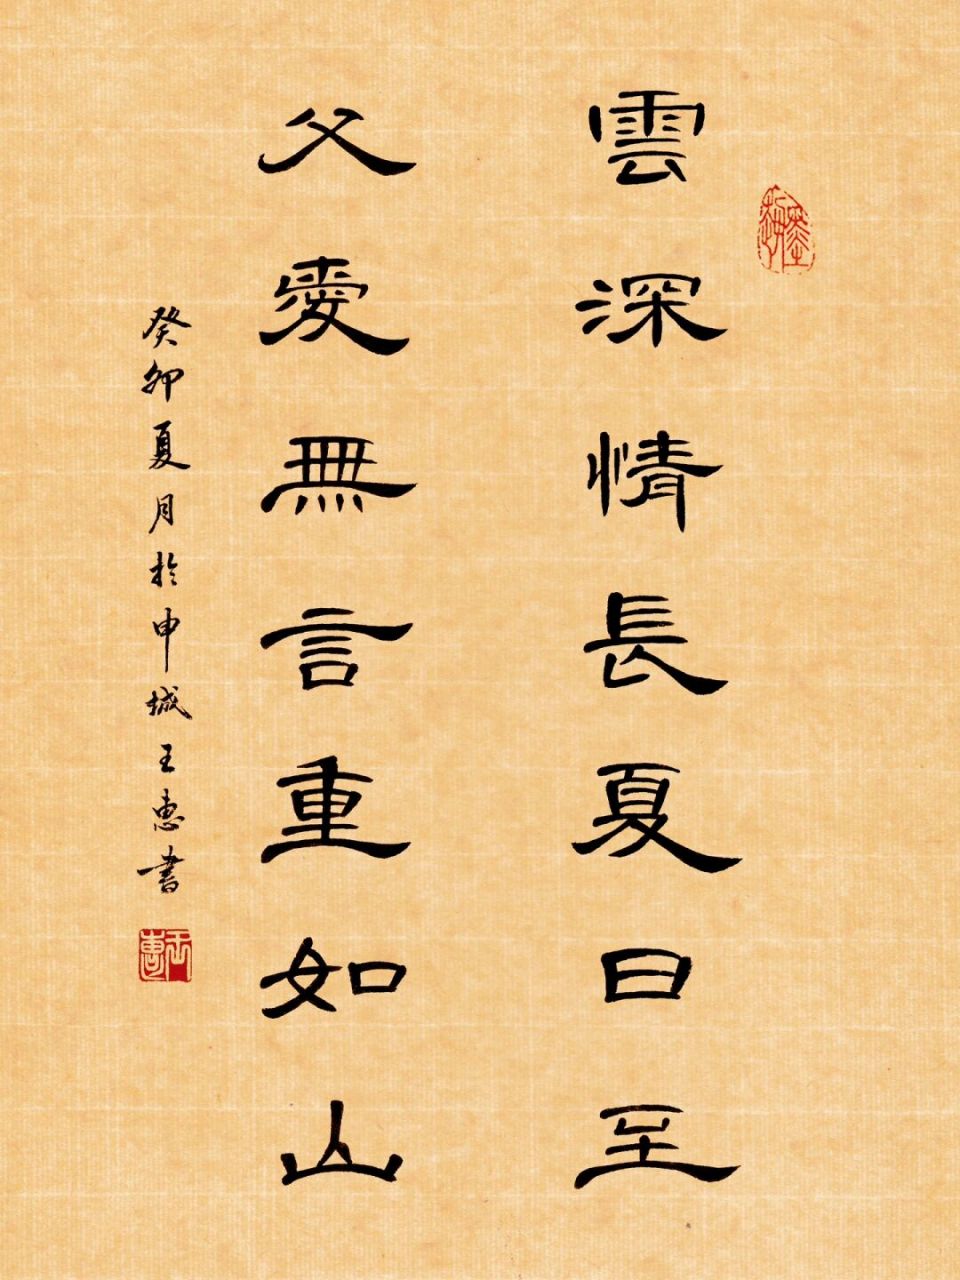 雲深情長夏日至
父愛無言重如山
癸卯夏月於申城王惠書
王惠